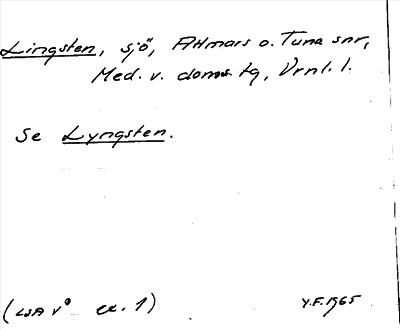 Lingsten, sjö, Attmars o. Tuna snr,
Med. v. doms. tg, Vrnl. l.
Se Lyngsten.
(LSA v° ex. 1) Y.F. 1965